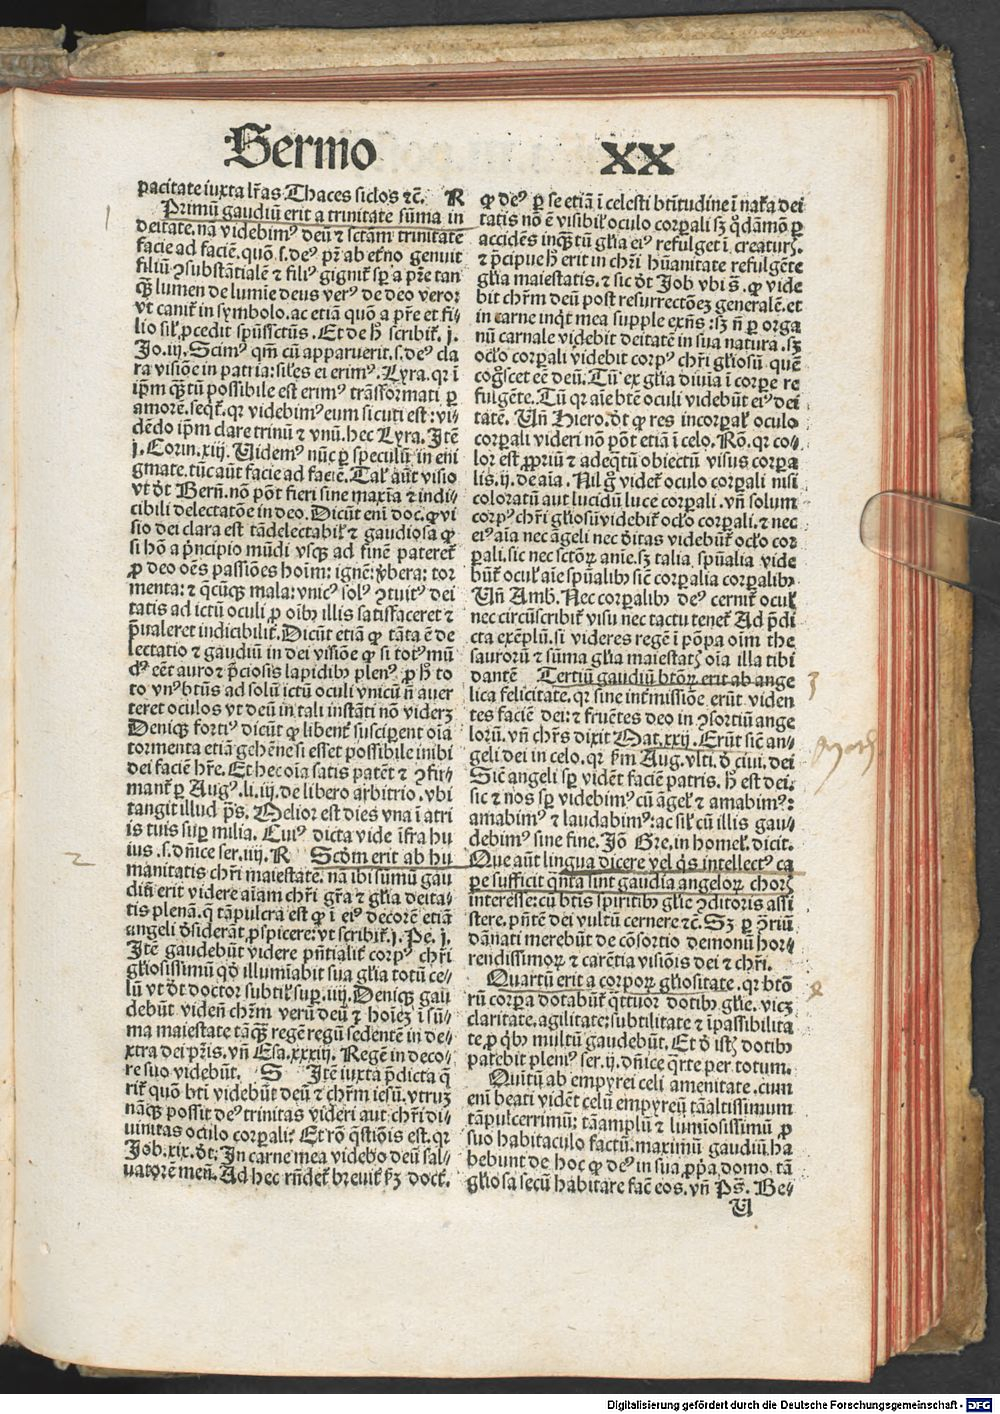 Sermo XX
pacitate iuxta lr̃as Thaces siclos ⁊c̃. R
Primũ gaudiũ erit a trinitate sũma in
deitate. nã videbimꝰ deũ ⁊ sctãm trinitatẽ
facie ad faciẽ. quõ .s. deꝰ pr̃ ab et̃no genuit
filiũ ꝯsubstãtialẽ ⁊ filiꝰ gignit̃ sp̃ a pr̃e tan
q̃ lumen de lumĩe deus verꝰ de deo vero:
vt canit̃ in symbolo. ac etiã quõ a pr̃e et fi⸗
lio sil̃ ꝓcedit spũssctũs. Et de h̃ scribit̃. j.
Jo. iij. Scimꝰ qm̃ cũ apparuerit .s. deꝰ cla
ra visiõe in patria: sil̃es ei erimꝰ. Lyra. qr ĩ
ip̃m q̃tũ possibile est erimꝰ trãsformati ꝑ
amorẽ. seq̃t̃. qr videbimꝰ eum sicuti est: vi⸗
dẽdo ip̃m clare trinũ ⁊ vnũ. hec Lyra. Itẽ
j. Corin. xiij. Uidemꝰ nũc ꝑ speculũ in eni
gmate. tũc aũt facie ad faciẽ. Tal̃ aũt visio
vt dt̃ Bern̄. nõ põt fieri sine maxĩa ⁊ indi⸗
cibili delectatõe in deo. Dicũt eni doc. ꝙ vi
sio dei clara est tãdelectabil̃ ⁊ gaudiosa ꝙ
si hõ a p̃ncipio mũdi vsq̃ ad finẽ pateret̃
ꝓ deo oẽs passiões hoĩm: ignẽ: v̾bera: tor
menta: ⁊ q̃cũq̃ mala: vnicꝰ solꝰ ꝯtuitꝰ dei
tatis ad ictũ oculi ꝓ oĩbꝫ illis satisfaceret ⁊
p̃ualeret indicibilit̃. Dicũt etiã ꝙ tãta ẽ de
lectatio ⁊ gaudiũ in dei visiõe ꝙ si totꝰ mũ
dꝰ eẽt auro ⁊ p̃ciosis lapidibꝫ plenꝰ. ꝓ h̃ to
to vnꝰ btũs ad solũ ictũ oculi vnicũ ñ auer
teret oculos vt deũ in tali instãti nõ viderꝫ
Deniqꝫ fortiꝰ dicũt ꝙ libent̃ susciperent oĩa
tormenta etiã gehẽne si esset possibile inibi
dei faciẽ hr̃e. Et hec oĩa satis patẽt ⁊ ꝯfir⸗
mant̃ ꝑ Augꝰ. li. iij. de libero arbitrio. vbi
tangit illud p̃s. Melior est dies vna ĩ atri
is tuis suꝑ milia. Cuiꝰ dicta vide ĩfra hu
ius .s. dñice ser. iiij. R Scõm erit ab hu
manitatis chr̃i maiestate. nã ibi sũmũ gau
diũ erit videre aĩam chr̃i gr̃a ⁊ gl̃ia deita⸗
tis plenã. q̃ tãpulcra est ꝙ ĩ eiꝰ decorẽ etiã
angeli d̾siderãt ꝓspicere: vt scribit̃. j. Pe. j.
Itẽ gaudebũt videre p̃ntialit̃ corpꝰ chr̃i
gl̃iosissimũ qd̾ illumĩabit sua gl̃ia totũ ce⸗
lũ vt dt̃ doctor subtil̃ suꝑ. iiij. Deniqꝫ gau
debũt viden̄ chr̃m verũ deũ ⁊ hoĩeꝫ ĩ sũ⸗
ma maiestate tãq̃ regẽ regũ sedentẽ in de⸗
xtra dei pr̃is. vñ Esa. xxxiij. Regẽ in deco⸗
re suo videbũt. S Itẽ iuxta p̃dicta q̃
rit̃ quõ bti videbũt deũ ⁊ chr̃m iesũ. vtruꝫ
nãqꝫ possit deꝰ trinitas videri aut chr̃i di⸗
uinitas oculo corꝑali? Et rõ q̃stiõis est. qr
Job. xix. dt̃: In carne mea videbo deũ sal⸗
uatorẽ meũ. Ad hec rñdet̃ breuit̃ ẜm doct̃.
ꝙ deꝰ ꝑ se etiã ĩ celesti btĩtudine ĩ nat̃a dei
tatis nõ ẽ visibil̃ oculo corꝑali sꝫ q̃dãmõ ꝑ
accidẽs inq̃tũ gl̃ia eiꝰ refulget ĩ creaturꝭ.
⁊ p̃cipue h̃ erit in chr̃i hũanitate refulgẽte
gl̃ia maiestatis. ⁊ sic dt̃ Job vbi s̃. ꝙ vide
bit chr̃m deũ post resurrectõeꝫ generalẽ. et
in carne inqt̃ mea supple exñs: sꝫ ñ ꝑ orga
nũ carnale videbit deitatẽ in sua natura. sꝫ
ocl̃o corꝑali videbit corpꝰ chr̃i gl̃iosũ quẽ
cogscet eẽ deũ. Tũ ex gl̃ia diuĩa ĩ corpe re
fulgẽte. Tũ qr aĩe btẽ oculi videbũt eiꝰ dei
tatẽ. Uñ Hiero. dt̃ ꝙ res incorꝑal̃ oculo
corꝑali videri nõ põt etiã ĩ celo. Rõ. qr co⸗
lor est ꝓpriũ ⁊ adeq̃tũ obiectũ visus corꝑa
lis. ij. de aĩa. Nil g̾ videt̃ oculo corꝑali nisi
coloratũ aut lucidũ luce corꝑali. vñ solum
corpꝰ chr̃i gl̃iosũ videbit̃ ocl̃o corꝑali. ⁊ nec
eiꝰ aĩa nec ãgeli nec d̾itas videbũt̃ ocl̃o cor
ꝑali. sic nec sctõꝝ aĩe. sꝫ talia spũalia vide
bũt̃ ocul̃ aĩe spũalibꝫ sic̃ corꝑalia corꝑalibꝫ
Uñ Amb. Nec corꝑalibꝫ deꝰ cernit̃ ocul̃
nec circũscribit̃ visu nec tactu tenet̃ Ad p̃di
cta exẽplũ. si videres regẽ ĩ põpa oĩm the
sauroꝝ ⁊ sũma gl̃ia maiestatꝭ oĩa illa tibi
dantẽ Tertiũ gaudiũ btõꝝ erit ab ange
lica felicitate. qr sine int̃missiõe erũt viden
tes faciẽ dei: ⁊ fruẽtes deo in ꝯsortiũ ange
loꝝ. vñ chr̃s dixit Mat. xxij. Erũt sic̃ an⸗
geli dei in celo. qr ẜm Aug. vlti. d̾ ciui. dei
Sic̃ angeli sp̃ vidẽt faciẽ patris. h̃ est dei.
sic ⁊ nos sp̃ videbimꝰ cũ ãgel̃ ⁊ amabimꝰ:
amabimꝰ ⁊ laudabimꝰ: ac sil̃ cũ illis gau⸗
debimꝰ sine fine. Jõ Gre. in homel̃. dicit.
Que aũt lingua dicere vel q̃s intellectꝰ ca
pe sufficit q̃nta sint gaudia angeloꝝ chorꝭ
interesse: cũ btis spiritibꝫ gl̃ie ꝯditoris assi
stere. p̃ntẽ dei vultũ cernere ⁊c̃. Sꝫ ꝑ ꝯ̃riũ
dãnati merebũt̃ de cõsortio demonũ hor⸗
rendissimoꝝ ⁊ carẽtia visiõis dei ⁊ chr̃i.
Quartũ erit a corpoꝝ gl̃iositate. qr btõ
rũ corꝑa dotabũt̃ q̃ttuor dotibꝫ gl̃ie. vicꝫ
claritate. agilitate: subtilitate ⁊ ĩpassibilita
te. ꝓ q̃bꝫ multũ gaudebũt. Et d̾ istꝭ dotibꝫ
patebit pleniꝰ ser. ij. dñice q̃rte per totum.
Quĩtũ ab empyrei celi amenitate. cum
eni beati vidẽt celũ empyreũ tãaltissimum
tãpulcerrimũ: tãamplũ ⁊ lumĩosissimũ ꝓ
suo habitaculo factũ. maximũ gaudiũ ha
bebunt de hoc ꝙ deꝰ in sua ꝓp̃a domo. tã
gl̃iosa secũ habitare fac̃ eos. vñ Ps̃. Be⸗
U
1
2
3
4
Digitalisierung gefördert durch die Deutsche Forschungsgemeinschaft - DFG